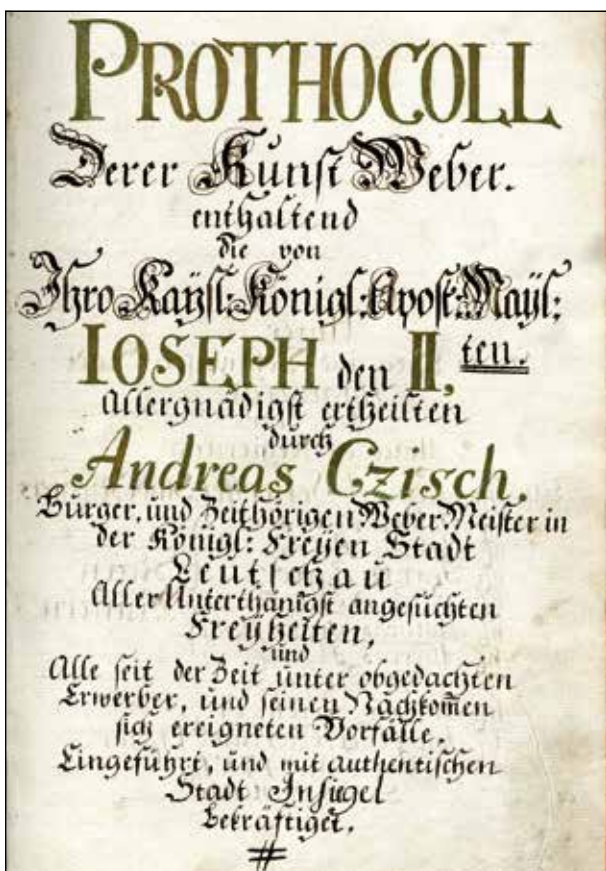 PROTHOCOLL
Derer Kunst Weber.
enthaltend
die von
Ihro Kaÿsl: Königl: Apost: Maÿl:
IOSEPH den II, ten.
Allergnädigst ertheilten
durch
Andreas Czisch,
Burger, und Zeithörigen Weber Meister in
der Königl: Freyen Stadt
Leutschau
Aller Unterthänigst angesuchten
Freyheiten,
und
Alle seit der Zeit unter obgedachten
Erwerber, und seinen Nachkom̄en
sich ereigneten Vorfälle.
Eingeführt, und mit authentischen
Stadt Insiegel
bekräftiget.